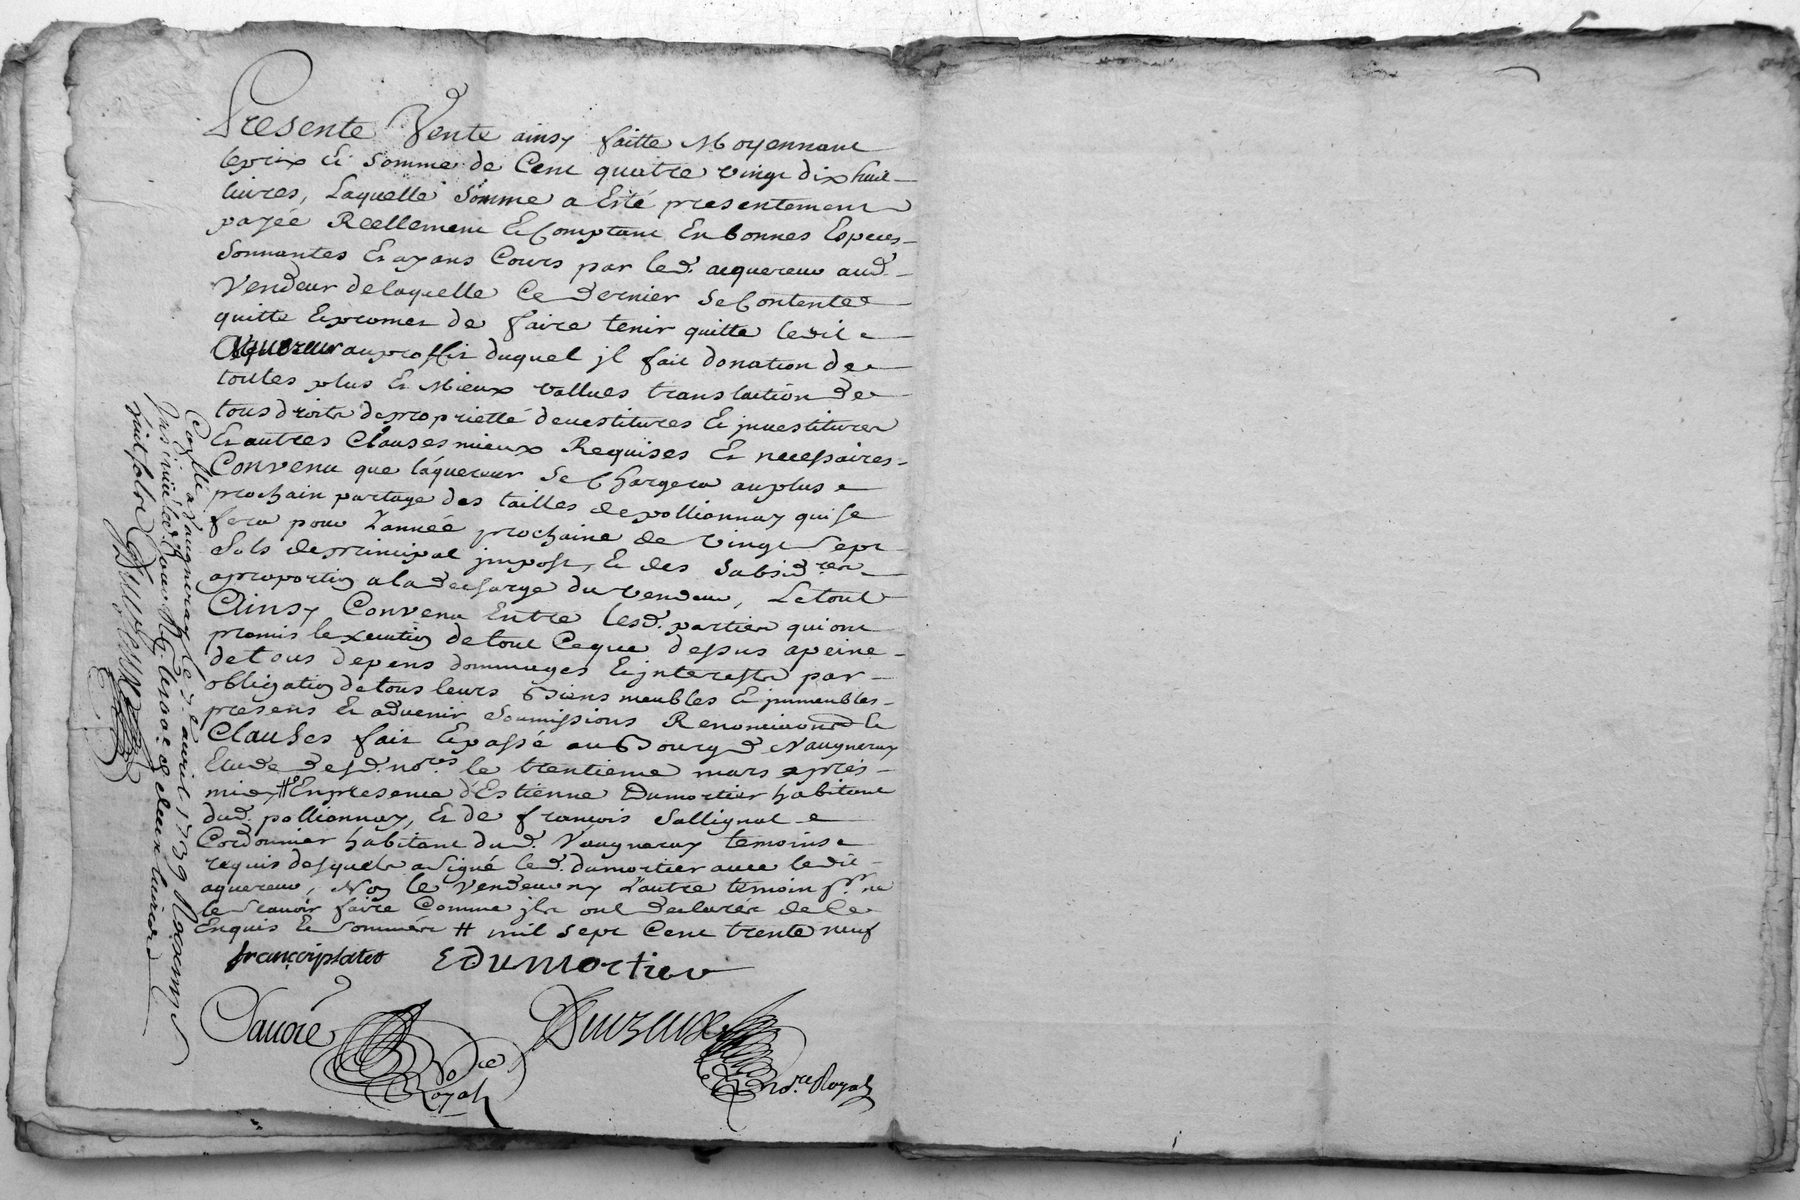 Presente Vente ainsy faitte Moyennant
leprix et somme de Cent quatre vingt dix huit
livres, Laquelle somme a Esté presentement
payée Reellement et Comptant En bonnes Especes
sonnantes Et ayans Cours par led. acquereur aud.
Vendeur de laquelle Ce dernier se Contente
quitte Et promet de faire tenir quitte ledit
acquereur au proffit duquel jl fait donation de
touttes plus Et Mieux vallues translation de
tous droits de proprietté devestitures Et jnvestitures
Et autres Clauses mieux Requises Et necessaires
Convenu que láquereur se Chargera au plus
prochain partage des tailles de pollionnay qui se
fera pour L'année prochaine de vingt sept
sols de principal jmpost, Et des subsid.res
aproportion a la decharge du vendeur, Le tout
Ainsy Convenu Entre lesd. parties qui ont
promis lexecution de tout Ceque dessus apeine
de tous depens dommages Et jnterests par
obligation de tous leurs biens meubles Et jmmeubles
presens Et advenir soumissions Renonciations Et
Clauses fait Et passé au Bourg de Vaugneray
Etude desd. no.res le trentieme mars apres
midy # En presence d'Estienne Dumortier habitant
dud. pollionnay, Et de francois Sallignat
Cordonnier habitant dud. Vaugneray temoins
requis desquels a signé led. dumortier avec ledit
aquereur, Non le vendeur ny L'autre temoin pr. ne
le scavoir faire Comme jls ont declarés de ce
Enquis Et sommés # mil sept Cent trente neuf
françois platet EDumortier
no.re Royal
no.re Royal
Con.lle a Vaugneray le d. e avril 1739